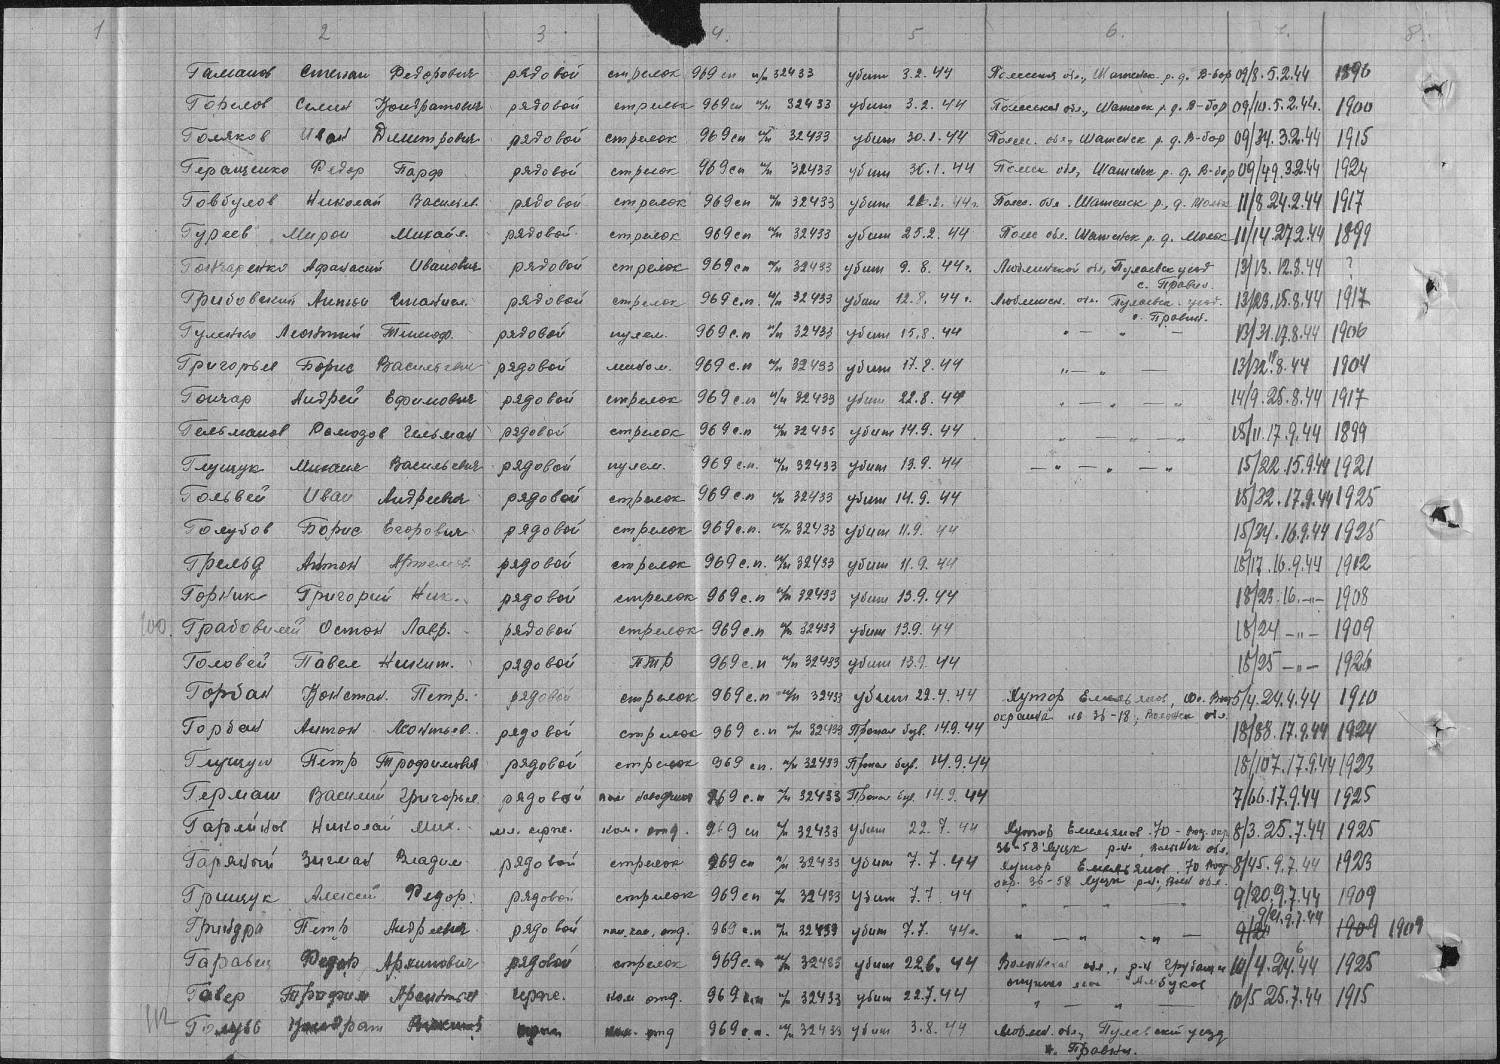 1 2 3 4. 5 6. 7. 8.
Гаманов Степан Федорович рядовой стрелок 969 сп п/п 32433 убит 3.2.44 Полесская обл., Шатенск. р. д. В-бор 09/8. 5.2.44 1896
Горелов Семен Кондратович рядовой стрелок 969 сп п/п 32433 убит 3.2.44 Полесская обл, Шатенск р.д. В-бор 09/10. 5.2.44. 1900
Голяков Иван Димитрович рядовой стрелок 969 сп п/п 32433 убит 30.1.44 Полес. обл, Шатенск р. д. В-бор 09/34. 3.2.44 1915
Геращенко Федор рядовой стрелок 969 сп п/п 32433 убит 30.1.44 Полесс обл, Шатенск р. д. В-бор 09/49. 3.2.44 1924
Говбулов Николай Васильев. рядовой стрелок 969 сп п/п 32433 убит 44г. Полес. обл. Шатенск р. д. 11/8 24.2.44 1917
Гуреев Мирон Михайл. рядовой стрелок 969 сп п/п 32433 убит 25.2.44 Полес обл. Шатенск р. д. 11/14. 27.2.44 1899
Гончаренко Афанасий Иванович рядовой стрелок 969 сп п/п 32433 убит 9.8.44г. Люблинской обл, Пулавск уезд 13/13. 12.8.44 ?
с. Правин.
Грибовский Антон Станисл. рядовой стрелок 969 с.п. п/п 32433 убит 12.8.44г. Люблинск. обл. Пулавск. уезд. 13/23. 15.8.44 1917
с. Правин.
Гуменю Леонтий Тимоф. рядовой пулем. 969 с.п п/п 32433 убит 15.8.44 " — " — 13/31. 17.8.44 1906
Григорьев Борис Васильевич рядовой 969 с.п п/п 32433 убит 17.8.44 " — " — 13/32 8.44 1904
Гончар Андрей Ефимович рядовой стрелок 969 с.п п/п 32433 убит 22.8.44 " — " — " 14/9. 25.8.44 1917
Гельманов Рамазов Гельман рядовой стрелок 969 с.п п/п 32433 убит 14.9.44 " — " — " 18/11. 17.9.44 1899
Глущук Михаил Васильевич рядовой пулем. 969 с.п. п/п 32433 убит 13.9.44 — " — " — " 15/22. 15.9.44 1921
Гольвей Иван Андреевич рядовой стрелок 969 с.п п/п 32433 убит 14.9.44 18/32. 17.9.44 1925
Голубов Борис Егорович рядовой стрелок 969 с.п. п/п 32433 убит 11.9.44 18/24. 16.9.44 1925
Грельд Антон Артемов. рядовой стрелок 969 с.п. п/п 32433 убит 11.9.44 18/17. 16.9.44 1912
Горник Григорий Ник. рядовой стрелок 969 с.п п/п 32433 убит 13.9.44 18/23. 16. —"— 1908
100. Грабовский Остап Лавр. рядовой стрелок 969 с.п п/п 32433 убит 13.9.44 18/24 —"— 1909
Головей Павел Никит. рядовой ПТР 969 с.п п/п 32433 убит 13.9.44 18/25 —"— 1926
Горбан Констан. Петр. рядовой стрелок 969 с.п п/п 32433 убит 22.4.44 Хутор Емельянов, 5/4. 24.4.44 1910
окраина 36-18, Волынск обл.
Горбан Антон Леонтьев. рядовой стрелок 969 с.п п/п 32433 Пропал бзв. 14.9.44 18/88. 17.9.44 1924
Глущук Петр Трофимович рядовой стрелок 969 сп. п/п 32433 Пропал бзв. 14.9.44 18/107. 17.9.44 1923
Герман Василий Григорьев рядовой пом наводчика 969 с.п п/п 32433 Пропал бзв. 14.9.44 7/66. 17.9.44 1925
Николай Мих. мл. серж. ком. отд. 969 сп п/п 32433 убит 22.7.44 Хутор Емельянов. 70 - 8/3. 25.7.44 1925
36-58 Луцк р-н, Волынск обл.
Гаряный Зигман Владим рядовой стрелок 969 сп п/п 32433 убит 7.7.44 Хутор Емельянов. 70 8/45. 9.7.44 1923
окр. 36-58 Луцк р-н, Вол обл.
Грищук Алексей Федор. рядовой стрелок 969 сп п/п 32433 убит 7.7.44 " " — " 9/20. 9.7.44 1909
Гриндра Петр Андреевич рядовой отд. 969 с.п п/п 32433 убит 7.7.44г. " — " — " — 9/21 9/21. 9.7.44 1909 1909
Гаравец Федор Архипович рядовой стрелок 969 с.п п/п 32433 убит 22.6.44 Волынская обл., р-н 10/4. 24.6.44 1925
Гавер Трофим серж. ком отд. 969 с.п п/п 32433 убит 22.7.44 " — " 10/5 25.7.44 1915
112 Кондрат отд 969 с.п. п/п 32433 убит 3.8.44 Люблин. обл, Пулавский уезд
с. Правин.